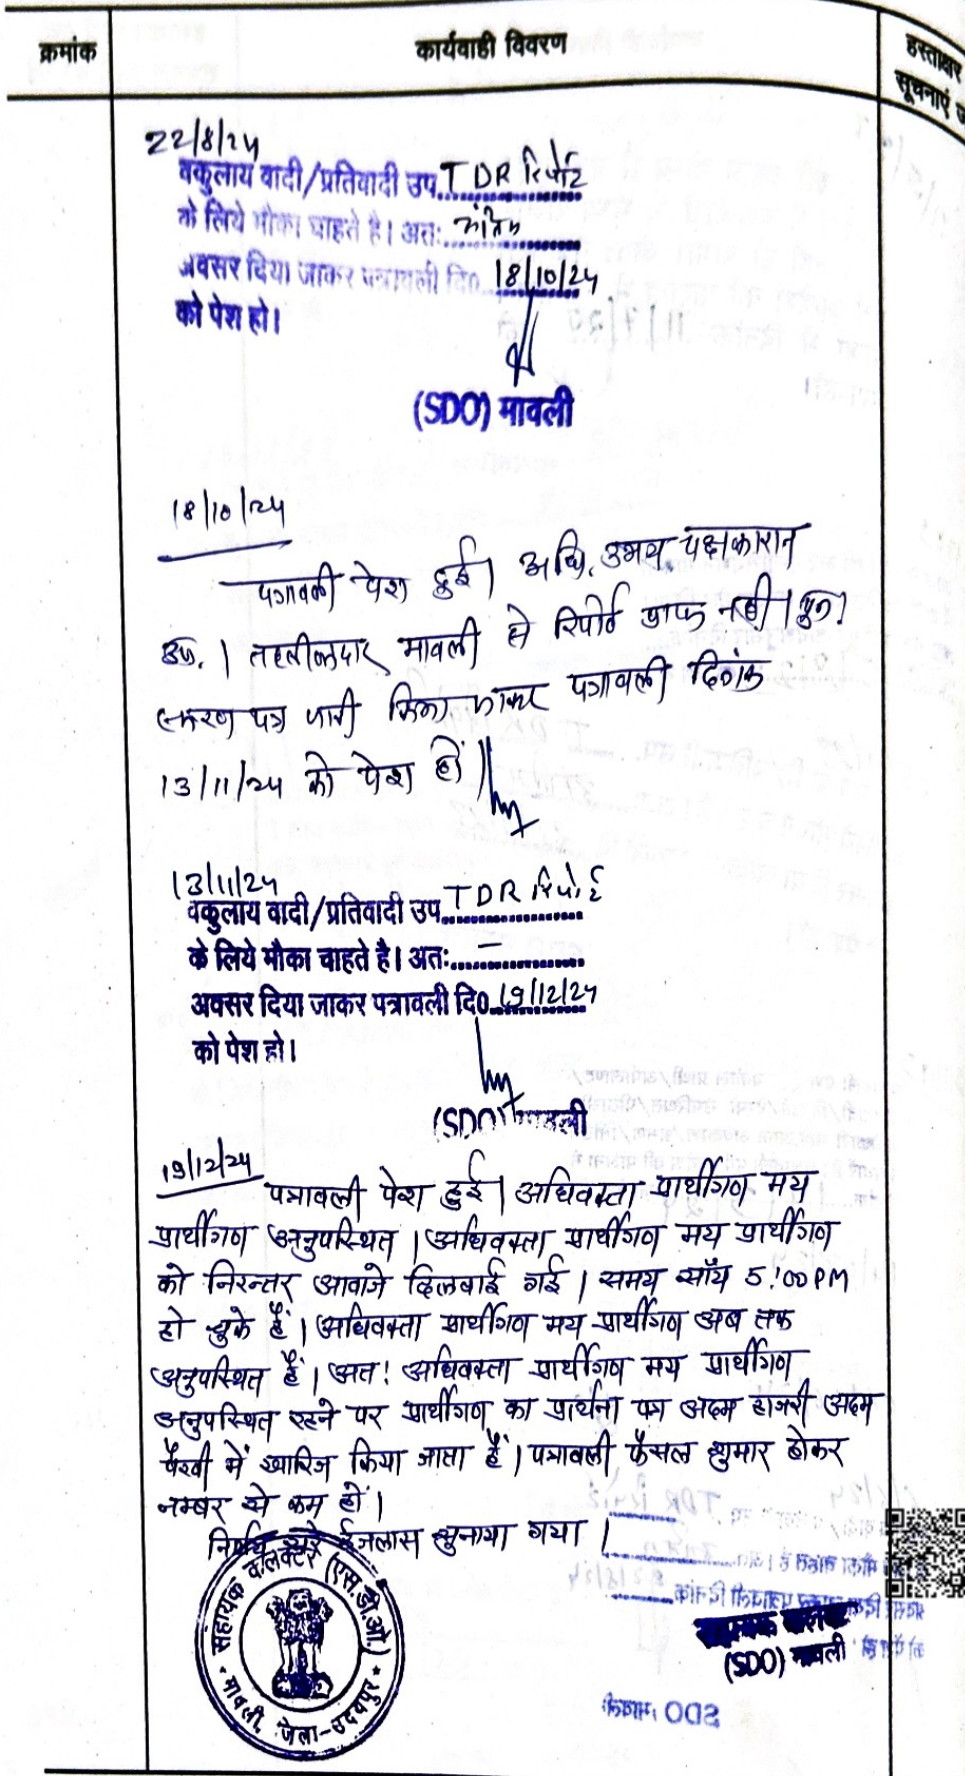 क्रमांक
कार्यवाही विवरण
हस्ताक्षर
सूचनाएं
22/8/24
वकुलाय वादी/प्रतिवादी उप. TDR रिपोर्ट
के लिये मौका चाहते है। अतः अंतिम
अवसर दिया जाकर पत्रावली दि० 18/10/24
को पेश हो।
(SDO) मावली
18/10/24
पत्रावली पेश हुई। अधि. उभय पक्षकारान
उप. । तहसीलदार मावली से रिपोर्ट प्राप्त नहीं। पुनः
स्मरण पत्र जारी किया जाकर पत्रावली दिनांक
13/11/24 को पेश हो।
13/11/24
वकुलाय वादी/प्रतिवादी उप. TDR रिपोर्ट
के लिये मौका चाहते है। अतः. –
अवसर दिया जाकर पत्रावली दि० 19/12/24
को पेश हो।
(SDO) मावली
19/12/24
पत्रावली पेश हुई। अधिवक्ता प्रार्थीगण मय
प्रार्थीगण अनुपस्थित। अधिवक्ता प्रार्थीगण मय प्रार्थीगण
को निरन्तर आवाजे दिलवाई गई। समय सॉय 5:00 PM
हो चुके हैं। अधिवक्ता प्रार्थीगण मय प्रार्थीगण अब तक
अनुपस्थित हैं। अतः अधिवक्ता प्रार्थीगण मय प्रार्थीगण
अनुपस्थित रहने पर प्रार्थीगण का प्रार्थना पत्र अदम हाजरी अदम
पैरवी में खारिज किया जाता हैं। पत्रावली फैसल शुमार होकर
नम्बर से कम हो।
निर्णय सरे ईजलास सुनाया गया।
सहायक कलेक्टर (एस.डी.ओ.)
मावली, जिला-उदयपुर
सहायक कलेक्टर
(SDO) मावली